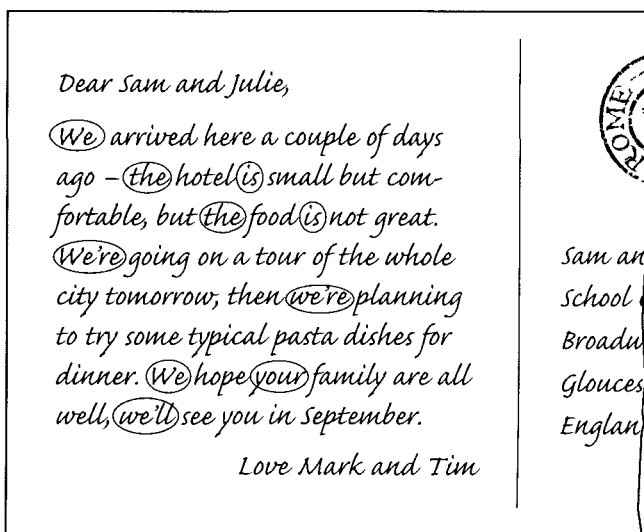 Dear Sam and Julie,
We arrived here a couple of days
ago – the hotel is small but com-
fortable, but the food is not great.
We're going on a tour of the whole
city tomorrow, then we're planning
to try some typical pasta dishes for
dinner. We hope your family are all
well, we'll see you in September.
Love Mark and Tim
ROME
Sam an
School
Broadw
Glouces
Englan